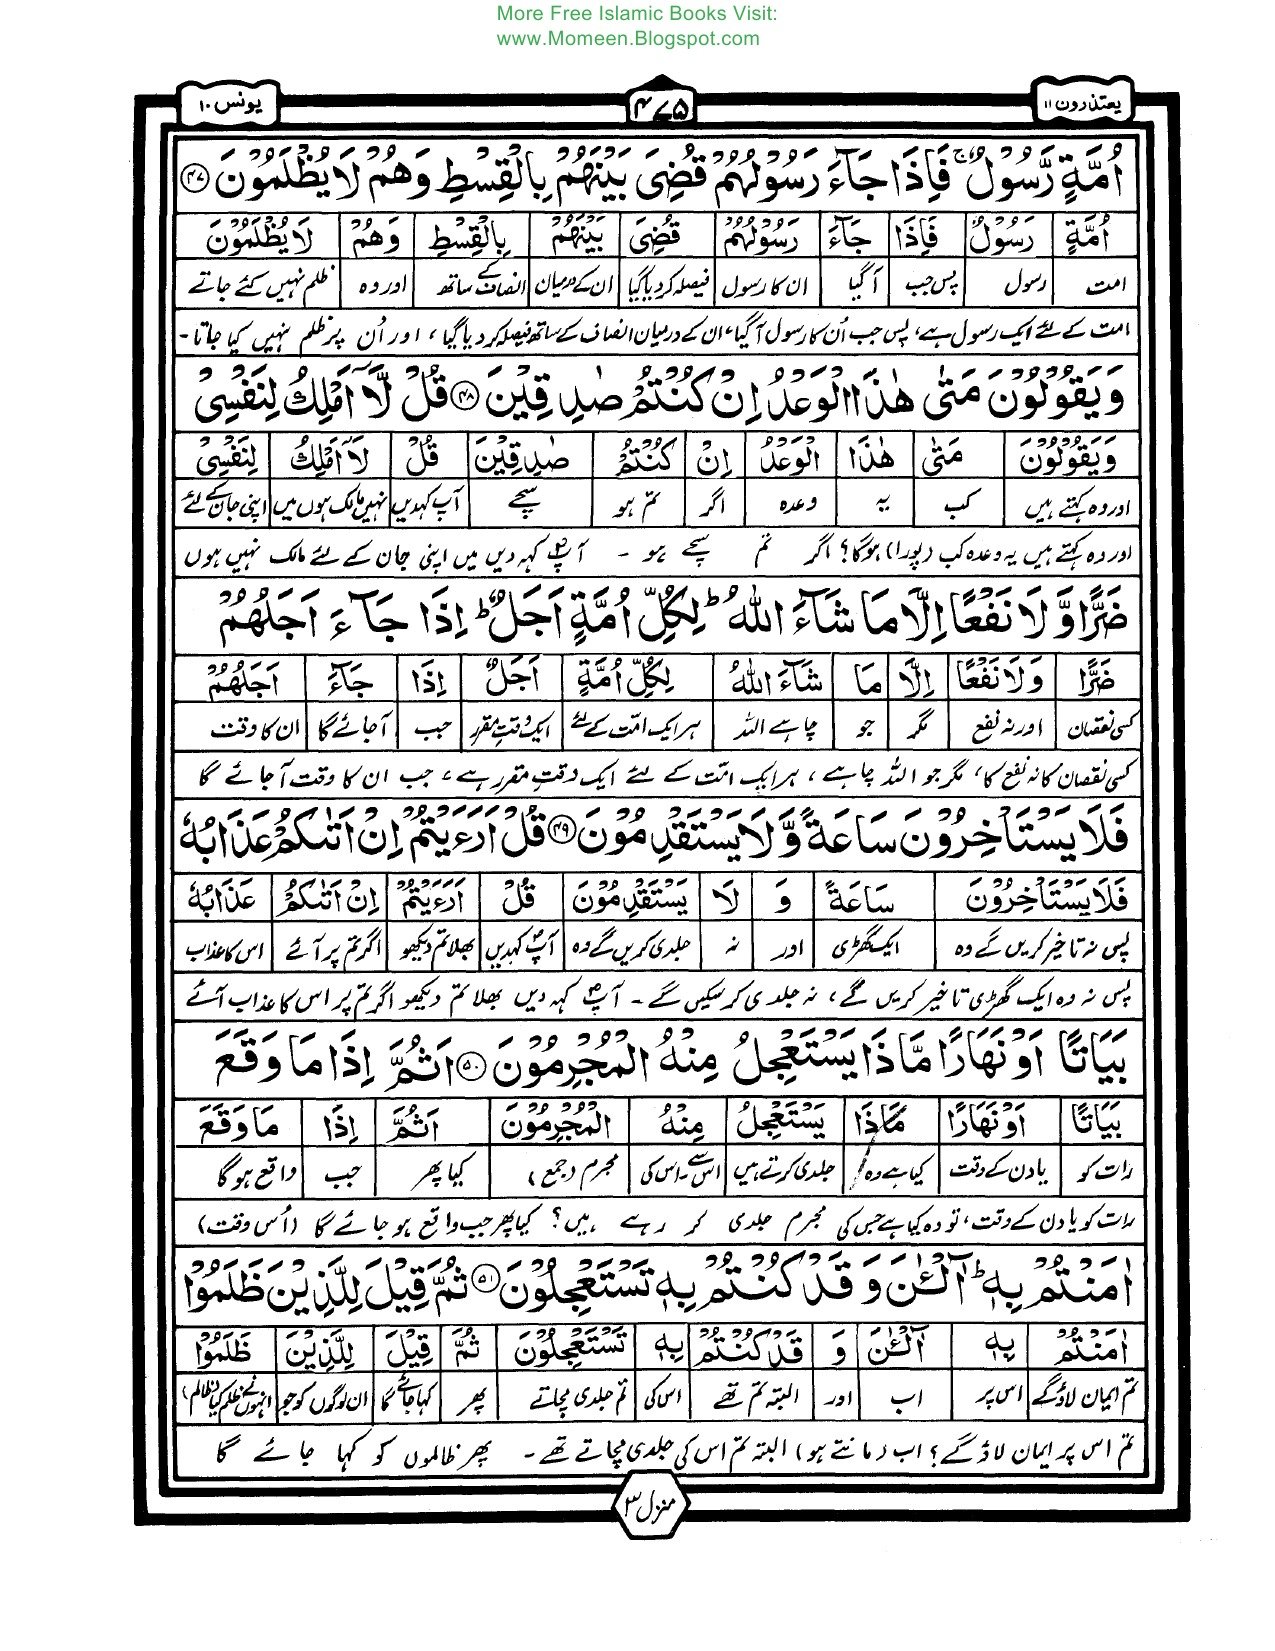 More Free Islamic Books Visit:
www.Momeen.Blogspot.com
یعتذرون ۱۱ ۴۷۵ یونس ۱۰
اُمَّةٍ رَّسُوْلٌ ۚ فَاِذَا جَآءَ رَسُوْلُهُمْ قُضِیَ بَیْنَهُمْ بِالْقِسْطِ وَهُمْ لَا یُظْلَمُوْنَ ۴۷
اُمَّةٍ رَسُوْلٌ فَاِذَا جَآءَ رَسُوْلُهُمْ قُضِیَ بَیْنَهُمْ بِالْقِسْطِ وَهُمْ لَا یُظْلَمُوْنَ
امت رسول پس جب آگیا ان کا رسول فیصلہ کردیا گیا ان کے درمیان انصاف کے ساتھ اور وہ ظلم نہیں کئے جاتے
امت کے لئے ایک رسول ہے، پس جب اُن کا رسول آگیا، ان کے درمیان انصاف کے ساتھ فیصلہ کردیا گیا، اور اُن پر ظلم نہیں کیا جاتا۔
وَیَقُوْلُوْنَ مَتٰی هٰذَا الْوَعْدُ اِنْ كُنْتُمْ صٰدِقِیْنَ ۴۸ قُلْ لَّاۤ اَمْلِكُ لِنَفْسِیْ
وَیَقُوْلُوْنَ مَتٰی هٰذَا الْوَعْدُ اِنْ كُنْتُمْ صٰدِقِیْنَ قُلْ لَاۤ اَمْلِكُ لِنَفْسِیْ
اور وہ کہتے ہیں کب یہ وعدہ اگر تم ہو سچے آپ کہدیں نہیں مالک ہوں میں اپنی جان کے لئے
اور وہ کہتے ہیں یہ وعدہ کب (پورا) ہوگا؟ اگر تم سچے ہو ۔ آپؐ کہہ دیں میں اپنی جان کے لئے مالک نہیں ہوں
ضَرًّا وَّ لَا نَفْعًا اِلَّا مَا شَآءَ اللّٰهُ ؕ لِكُلِّ اُمَّةٍ اَجَلٌ ؕ اِذَا جَآءَ اَجَلُهُمْ
ضَرًّا وَلَا نَفْعًا اِلَّا مَا شَآءَ اللّٰهُ لِكُلِّ اُمَّةٍ اَجَلٌ اِذَا جَآءَ اَجَلُهُمْ
کسی نقصان اور نہ نفع مگر جو چاہے اللہ ہر ایک امت کے لئے ایک وقت مقرر جب آجائے گا ان کا وقت
کسی نقصان کا نہ نفع کا، مگر جو اللہ چاہے، ہر ایک امت کے لئے ایک وقت مقرر ہے، جب ان کا وقت آجائے گا
فَلَا یَسْتَاْخِرُوْنَ سَاعَةً وَّ لَا یَسْتَقْدِمُوْنَ ۴۹ قُلْ اَرَءَیْتُمْ اِنْ اَتٰىكُمْ عَذَابُهٗ
فَلَا یَسْتَاْخِرُوْنَ سَاعَةً وَ لَا یَسْتَقْدِمُوْنَ قُلْ اَرَءَیْتُمْ اِنْ اَتٰىكُمْ عَذَابُهٗ
پس نہ تاخیر کریں گے وہ ایک گھڑی اور نہ جلدی کریں گے وہ آپؐ کہدیں بھلا تم دیکھو اگر تم پر آئے اس کا عذاب
پس نہ وہ ایک گھڑی تاخیر کریں گے، نہ جلدی کر سکیں گے ۔ آپؐ کہہ دیں بھلا تم دیکھو اگر تم پر اس کا عذاب آئے
بَیَاتًا اَوْ نَهَارًا مَّاذَا یَسْتَعْجِلُ مِنْهُ الْمُجْرِمُوْنَ ۵۰ اَثُمَّ اِذَا مَا وَقَعَ
بَیَاتًا اَوْ نَهَارًا مَّاذَا یَسْتَعْجِلُ مِنْهُ الْمُجْرِمُوْنَ اَثُمَّ اِذَا مَا وَقَعَ
رات کو یا دن کے وقت کیا ہے وہ جلدی کرتے ہیں اس سے۔اس کی مجرم (جمع) کیا پھر جب واقع ہوگا
رات کو یا دن کے وقت، تو وہ کیا ہے جس کی مجرم جلدی کر رہے ہیں؟ کیا پھر جب واقع ہو جائے گا (اُس وقت)
اٰمَنْتُمْ بِهٖ ؕ آٰلْـٰٔنَ وَ قَدْ كُنْتُمْ بِهٖ تَسْتَعْجِلُوْنَ ۵۱ ثُمَّ قِیْلَ لِلَّذِیْنَ ظَلَمُوْا
اٰمَنْتُمْ بِهٖ آٰلْـٰٔنَ وَ قَدْ كُنْتُمْ بِهٖ تَسْتَعْجِلُوْنَ ثُمَّ قِیْلَ لِلَّذِیْنَ ظَلَمُوْا
تم ایمان لاؤگے اس پر اب اور البتہ تم تھے اس کی تم جلدی مچاتے پھر کہا جائے گا ان لوگوں کو جو انہوں نے ظلم کیا (ظالم)
تم اس پر ایمان لاؤ گے؟ اب (مانتے ہو) البتہ تم اس کی جلدی مچاتے تھے ۔ پھر ظالموں کو کہا جائے گا
منزل ۳